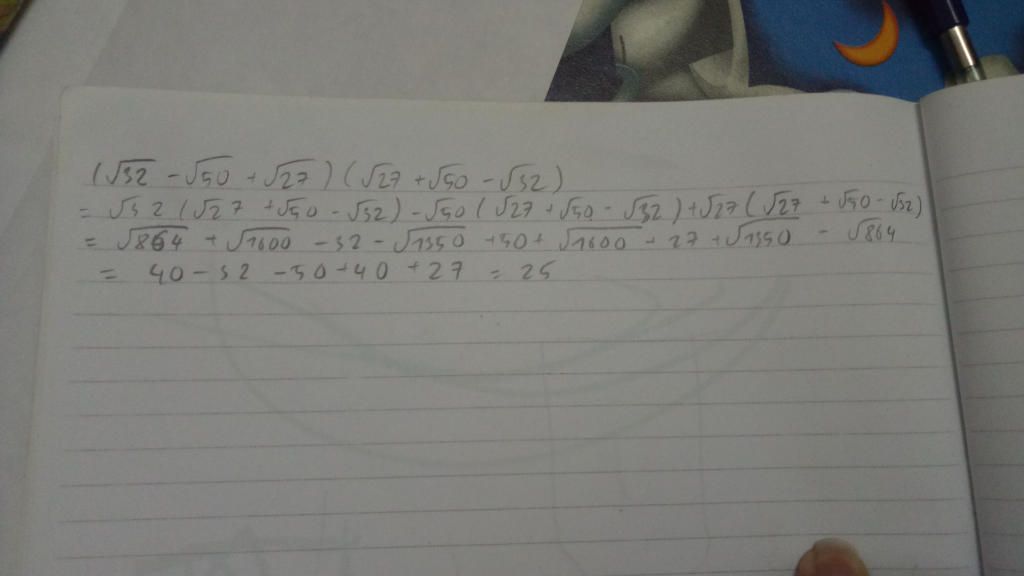 (√32 - √50 + √27) (√27 + √50 - √32)
= √32 (√27 + √50 - √32) - √50 (√27 + √50 - √32) + √27 (√27 + √50 - √32)
= √864 + √1600 - 32 - √1350 + 50 + √1600 + 27 + √1350 - √864
= 40 - 32 - 50 + 40 + 27 = 25